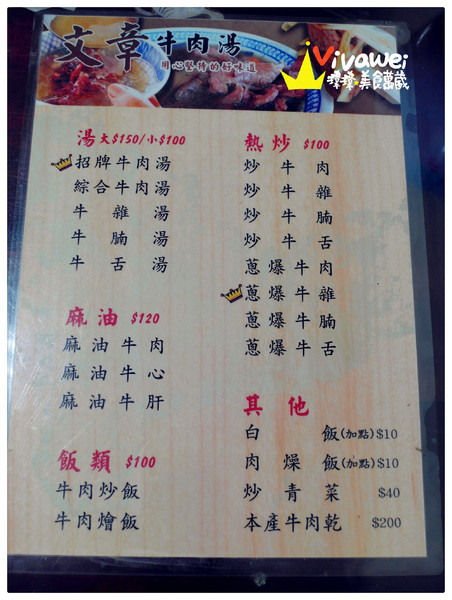 文章牛肉湯
用心堅持的好味道
Vivawei
瑋瑋*美食萬歲
湯 大$150/小$100
招牌牛肉湯
綜合牛肉湯
牛雜湯
牛腩湯
牛舌湯
麻油 $120
麻油牛肉
麻油牛心
麻油牛肝
飯類 $100
牛肉炒飯
牛肉燴飯
熱炒 $100
炒牛肉
炒牛雜
炒牛腩
炒牛舌
蔥爆牛肉
蔥爆牛雜
蔥爆牛腩
蔥爆牛舌
其他
白飯(加點)$10
肉燥飯(加點)$10
炒青菜 $40
本產牛肉乾 $200